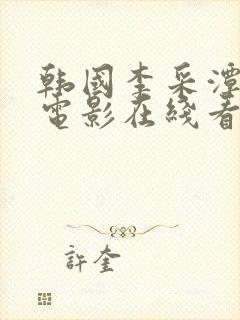 韩國李采潭
電影在綫看
許奎